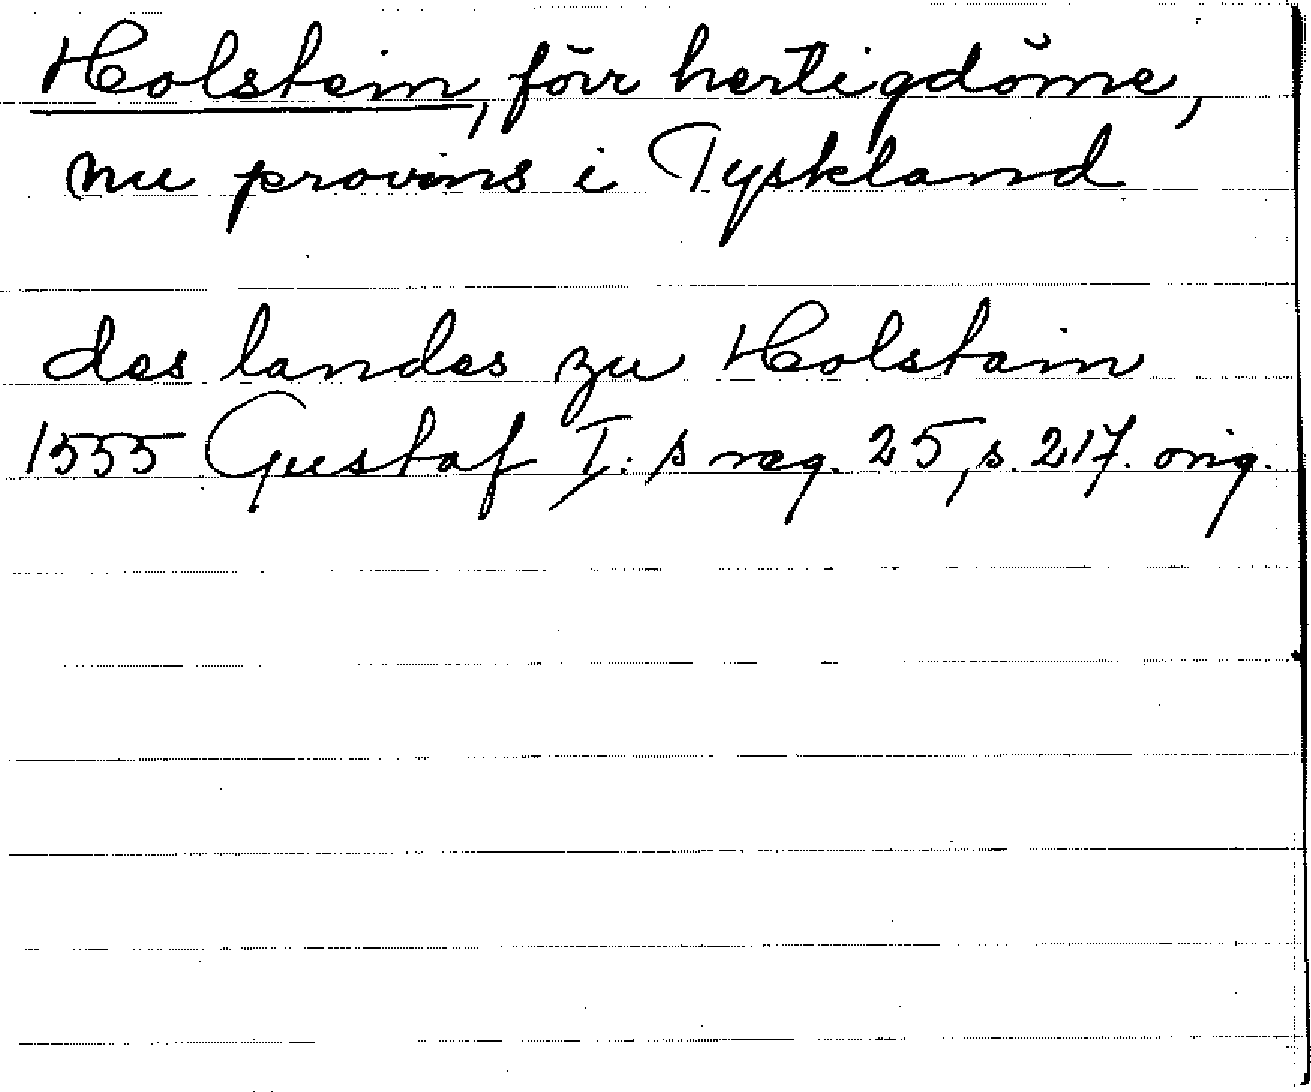 Holstein, förr hertigdöme,
nu provins i Tyskland
des landes zu Holstain
1555 Gustaf I:s reg. 25, s. 217. orig.